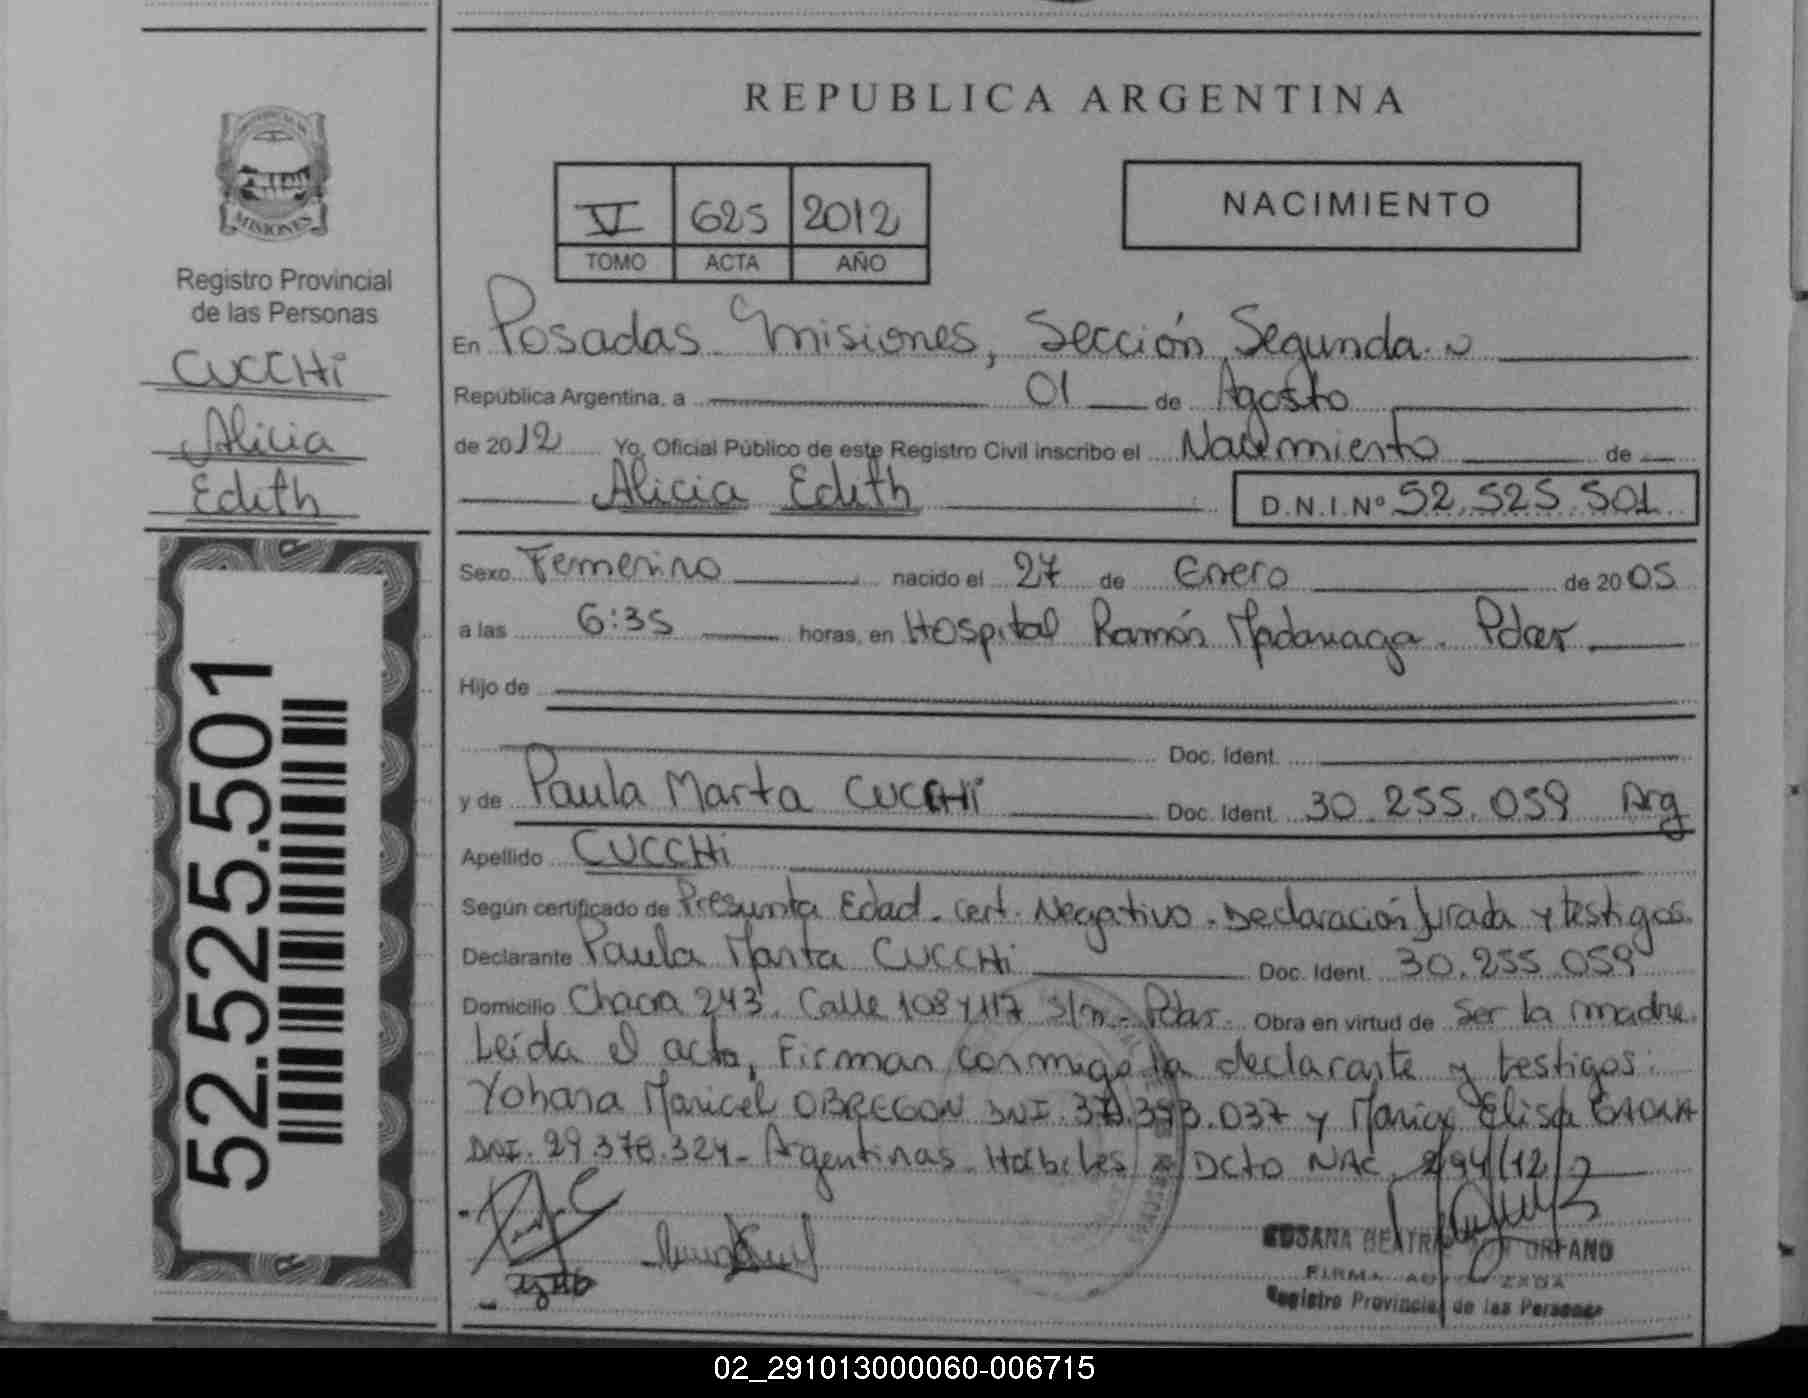 REPUBLICA ARGENTINA
MISIONES
Registro Provincial
de las Personas
CUCCHi
Alicia
Edith
52.525.501
V 625 2012
TOMO ACTA AÑO
NACIMIENTO
En Posadas Misiones, Sección Segunda.
República Argentina, a 01 de Agosto
de 2012 Yo, Oficial Público de este Registro Civil inscribo el Nacimiento de
Alicia Edith D.N.I.Nº 52.525.501
Sexo Femenino nacido el 27 de Enero de 2005
a las 6:35 horas, en Hospital Ramón Madariaga. Pdas
Hijo de
Doc. Ident.
y de Paula Marta CUCCHi Doc. Ident. 30.255.059 Arg
Apellido CUCCHi
Según certificado de Presunta Edad. Cert. Negativo. Declaración Jurada y testigos.
Declarante Paula Marta CUCCHi Doc. Ident. 30.255.059
Domicilio Chacra 243. Calle 108 y 117 S/n - Pdas. Obra en virtud de Ser la madre.
Leída el acta, Firman conmigo la declarante y testigos:
Yohana Maricel OBREGON DNI. 393.037 y Elisa
DNI. 29.378.324 - Argentinas. Hábiles Dcto NAC. 294/12
FIRMA AUTORIZADA
Registro Provincial de las Personas
02_291013000060-006715